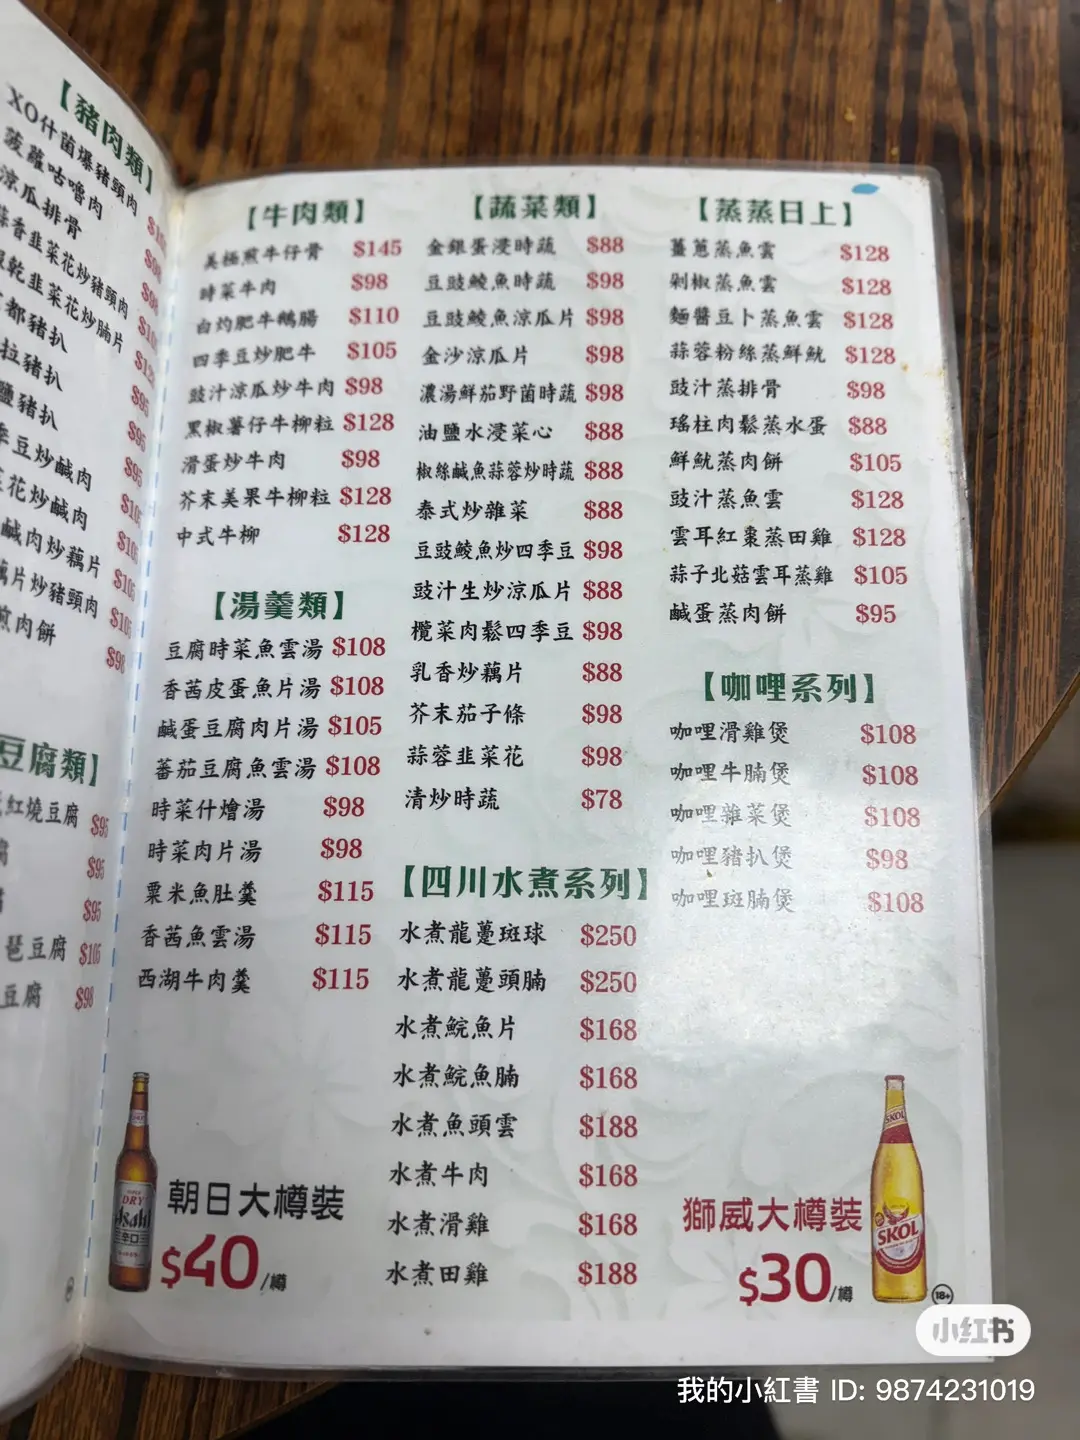 【豬肉類】
XO什菌爆豬頸肉
菠蘿咕嚕肉
涼瓜排骨
蒜香韭菜花炒豬頸肉
乾韭菜花炒腩片
都豬扒
拉豬扒
鹽豬扒
季豆炒鹹肉 $95
花炒鹹肉
鹹肉炒藕片
藕片炒豬頸肉
煎肉餅 $98
豆腐類】
紅燒豆腐 $95
$95
$95
琶豆腐 $105
豆腐 $98
【牛肉類】
美極煎牛仔骨 $145
時菜牛肉 $98
白灼肥牛鵝腸 $110
四季豆炒肥牛 $105
豉汁涼瓜炒牛肉 $98
黑椒薯仔牛柳粒 $128
滑蛋炒牛肉 $98
芥末美果牛柳粒 $128
中式牛柳 $128
【湯羹類】
豆腐時菜魚雲湯 $108
香茜皮蛋魚片湯 $108
鹹蛋豆腐肉片湯 $105
蕃茄豆腐魚雲湯 $108
時菜什燴湯 $98
時菜肉片湯 $98
粟米魚肚羹 $115
香茜魚雲湯 $115
西湖牛肉羹 $115
SUPER
DRY
Asahi
辛口
朝日大樽裝
$40/樽
【蔬菜類】
金銀蛋浸時蔬 $88
豆豉鯪魚時蔬 $98
豆豉鯪魚涼瓜片 $98
金沙涼瓜片 $98
濃湯鮮茄野菌時蔬 $98
油鹽水浸菜心 $88
椒絲鹹魚蒜蓉炒時蔬 $88
泰式炒雜菜 $88
豆豉鯪魚炒四季豆 $98
豉汁生炒涼瓜片 $88
欖菜肉鬆四季豆 $98
乳香炒藕片 $88
芥末茄子條 $98
蒜蓉韭菜花 $98
清炒時蔬 $78
【四川水煮系列】
水煮龍躉斑球 $250
水煮龍躉頭腩 $250
水煮鯇魚片 $168
水煮鯇魚腩 $168
水煮魚頭雲 $188
水煮牛肉 $168
水煮滑雞 $168
水煮田雞 $188
【蒸蒸日上】
薑蔥蒸魚雲 $128
剁椒蒸魚雲 $128
麵醬豆卜蒸魚雲 $128
蒜蓉粉絲蒸鮮魷 $128
豉汁蒸排骨 $98
瑤柱肉鬆蒸水蛋 $88
鮮魷蒸肉餅 $105
豉汁蒸魚雲 $128
雲耳紅棗蒸田雞 $128
蒜子北菇雲耳蒸雞 $105
鹹蛋蒸肉餅 $95
【咖哩系列】
咖哩滑雞煲 $108
咖哩牛腩煲 $108
咖哩雜菜煲 $108
咖哩豬扒煲 $98
咖哩斑腩煲 $108
獅威大樽裝
$30/樽
SKOL
SKOL
18+
小红书
我的小紅書 ID: 9874231019